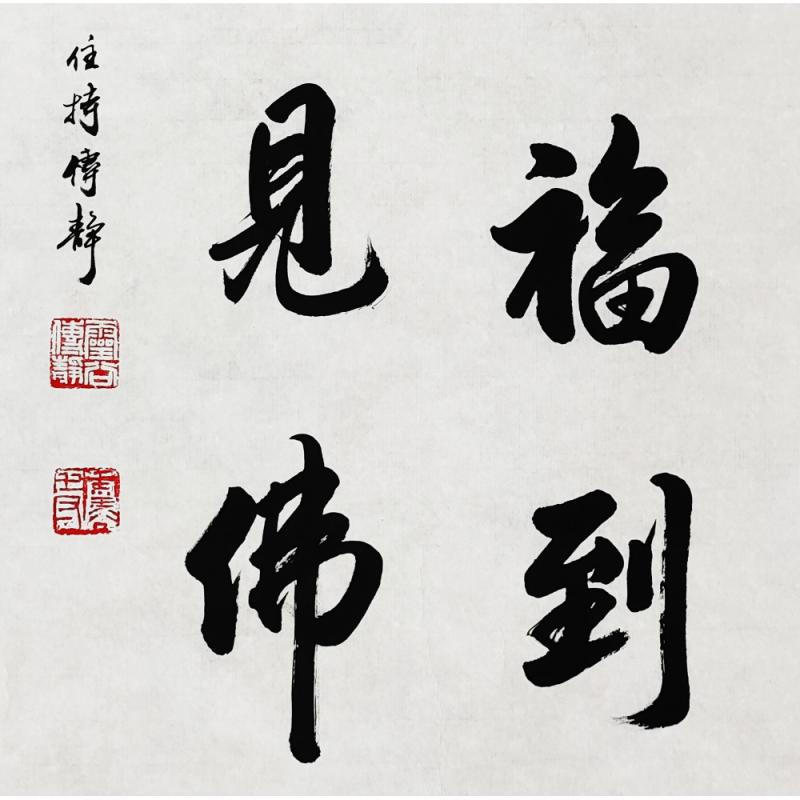 福到
見佛
住持傳靜